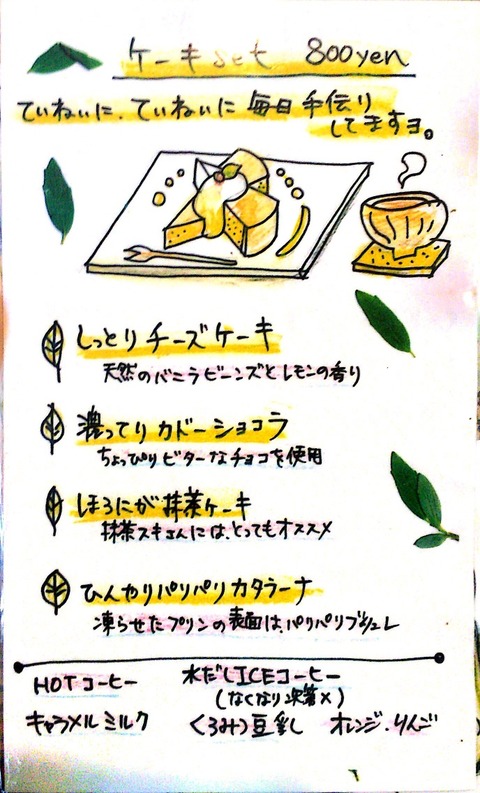 ケーキset 800yen
ていねいに、ていねいに 毎日 手伝り
してますヨ。
しっとり チーズケーキ
天然のバニラビーンズとレモンの香り
濃ってり カドーショコラ
ちょっぴりビターなチョコを使用
ほろにが抹茶ケーキ
抹茶スキさんには、とってもオススメ
ひんやりパリパリカタラーナ
凍らせたプリンの表面は、パリパリブリュレ
HOTコーヒー 水だしICEコーヒー
(なくなり次第×)
キャラメルミルク くるみ豆乳 オレンジ・りんご